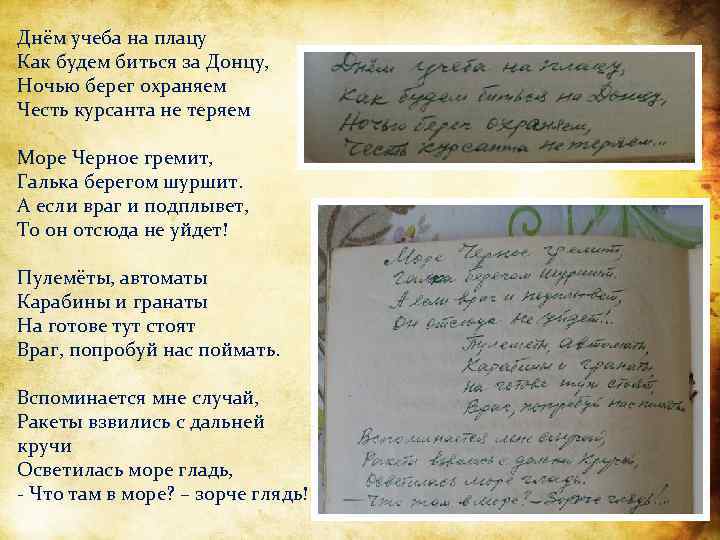 Днём учеба на плацу
Как будем биться за Донцу,
Ночью берег охраняем
Честь курсанта не теряем
Море Черное гремит,
Галька берегом шуршит.
А если враг и подплывет,
То он отсюда не уйдет!
Пулемёты, автоматы
Карабины и гранаты
На готове тут стоят
Враг, попробуй нас поймать.
Вспоминается мне случай,
Ракеты взвились с дальней
кручи
Осветилась море гладь,
- Что там в море? – зорче глядь!
Днём учеба на плацу,
Как будем биться на Донцу,
Ночью берег охраняем,
Честь курсанта не теряем...
Море Черное гремит,
Галька берегом шуршит.
А если враг и подплывет,
Он отсюда не уйдет!..
Пулеметы, автоматы,
Карабины и гранаты
на готове тут стоят,
Враг, попробуй нас поймать
Вспоминается мне случай,
Ракеты взвились с дальней кручи,
Осветилась море гладь.
— Что там в море? – Зорче глядь!..